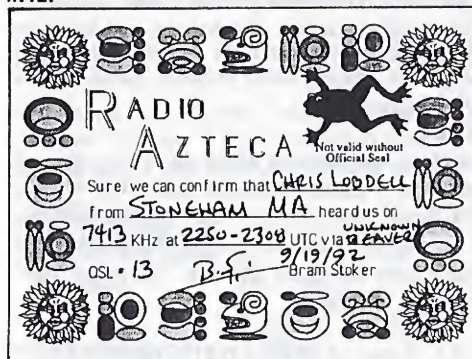 RADIO
AZTECA
Not valid without
Official Seal
Sure, we can confirm that CHRIS LOBDELL
from STONEHAM MA heard us on
7413 KHz at 2250-2308 UTC via UNKNOWN BEAVER
9/19/92
QSL # 13 B.S. Bram Stoker